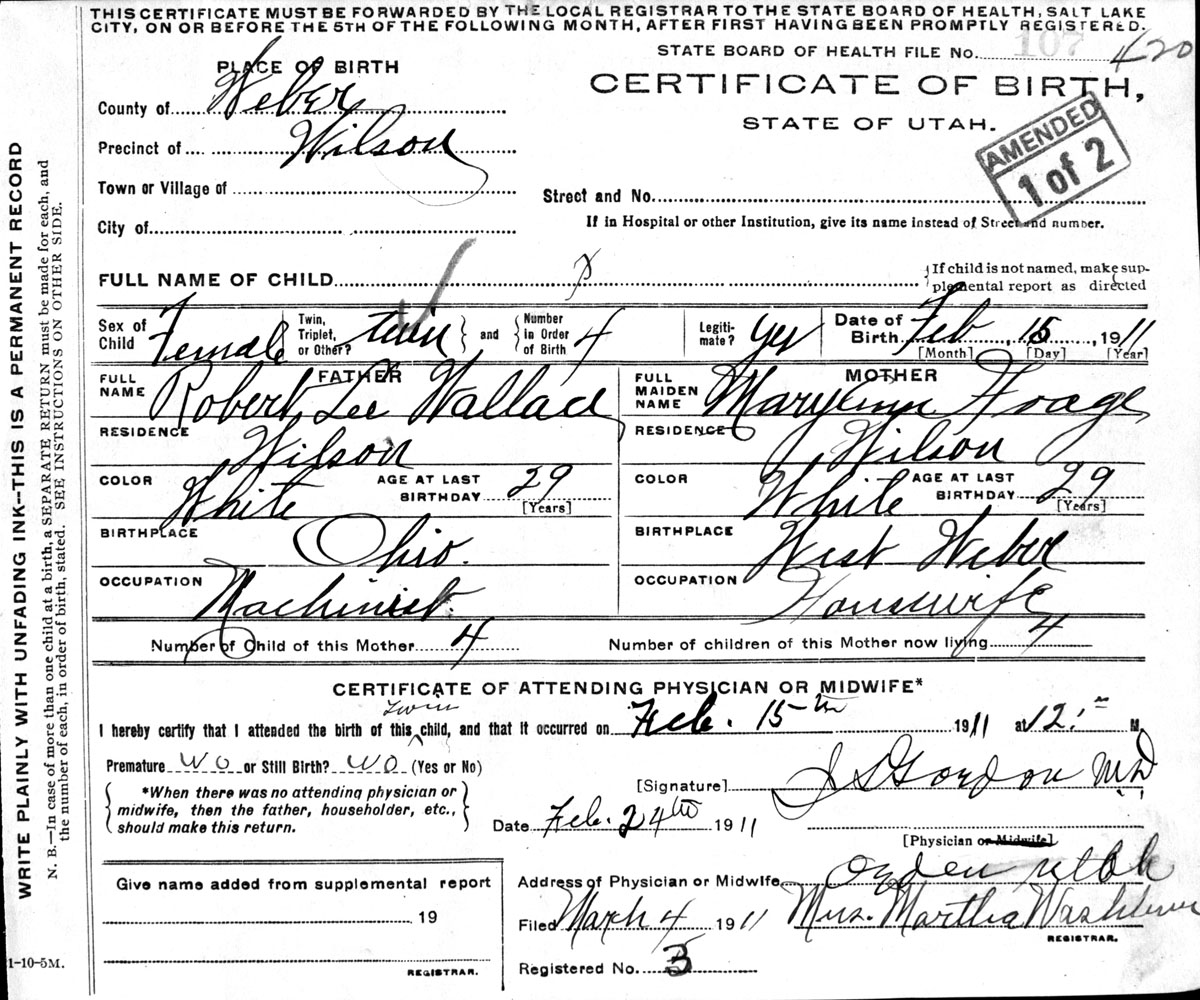 THIS CERTIFICATE MUST BE FORWARDED BY THE LOCAL REGISTRAR TO THE STATE BOARD OF HEALTH, SALT LAKE
CITY, ON OR BEFORE THE 5TH OF THE FOLLOWING MONTH, AFTER FIRST HAVING BEEN PROMPTLY REGISTERED.
STATE BOARD OF HEALTH FILE No. 107 420
PLACE OF BIRTH
CERTIFICATE OF BIRTH,
STATE OF UTAH.
AMENDED
1 of 2
County of Weber
Precinct of Wilson
Town or Village of
Street and No.
City of
If in Hospital or other Institution, give its name instead of Street and number.
FULL NAME OF CHILD
{If child is not named, make sup-
plemental report as directed
Sex of Child Female
Twin, Triplet, or Other? twin } and { Number in Order of Birth 4
Legiti-mate? yes
Date of Birth Feb 15 1911
[Month] [Day] [Year]
FATHER
FULL NAME Robert Lee Wallace
RESIDENCE Wilson
COLOR White AGE AT LAST BIRTHDAY 29
[Years]
BIRTHPLACE Ohio.
OCCUPATION Machinist.
MOTHER
FULL MAIDEN NAME Mary Hoage
RESIDENCE Wilson
COLOR White AGE AT LAST BIRTHDAY 29
[Years]
BIRTHPLACE West Weber
OCCUPATION Housewife
Number of Child of this Mother 4 Number of children of this Mother now living 4
CERTIFICATE OF ATTENDING PHYSICIAN OR MIDWIFE*
twin
I hereby certify that I attended the birth of this child, and that it occurred on Feb. 15th 1911 at 12: M
Premature no or Still Birth? no (Yes or No)
{ *When there was no attending physician or
midwife, then the father, householder, etc.,
should make this return. }
[Signature] J S Gordon MD
Date Feb. 24th 1911
[Physician or Midwife]
Address of Physician or Midwife Ogden Utah
Filed March 4 1911 Mrs. Martha Washburn
REGISTRAR.
Registered No. 3
Give name added from supplemental report
19
REGISTRAR.
1-10-5M.
WRITE PLAINLY WITH UNFADING INK--THIS IS A PERMANENT RECORD
N. B.—In case of more than one child at a birth, a SEPARATE RETURN must be made for each, and
the number of each, in order of birth, stated. SEE INSTRUCTIONS ON OTHER SIDE.